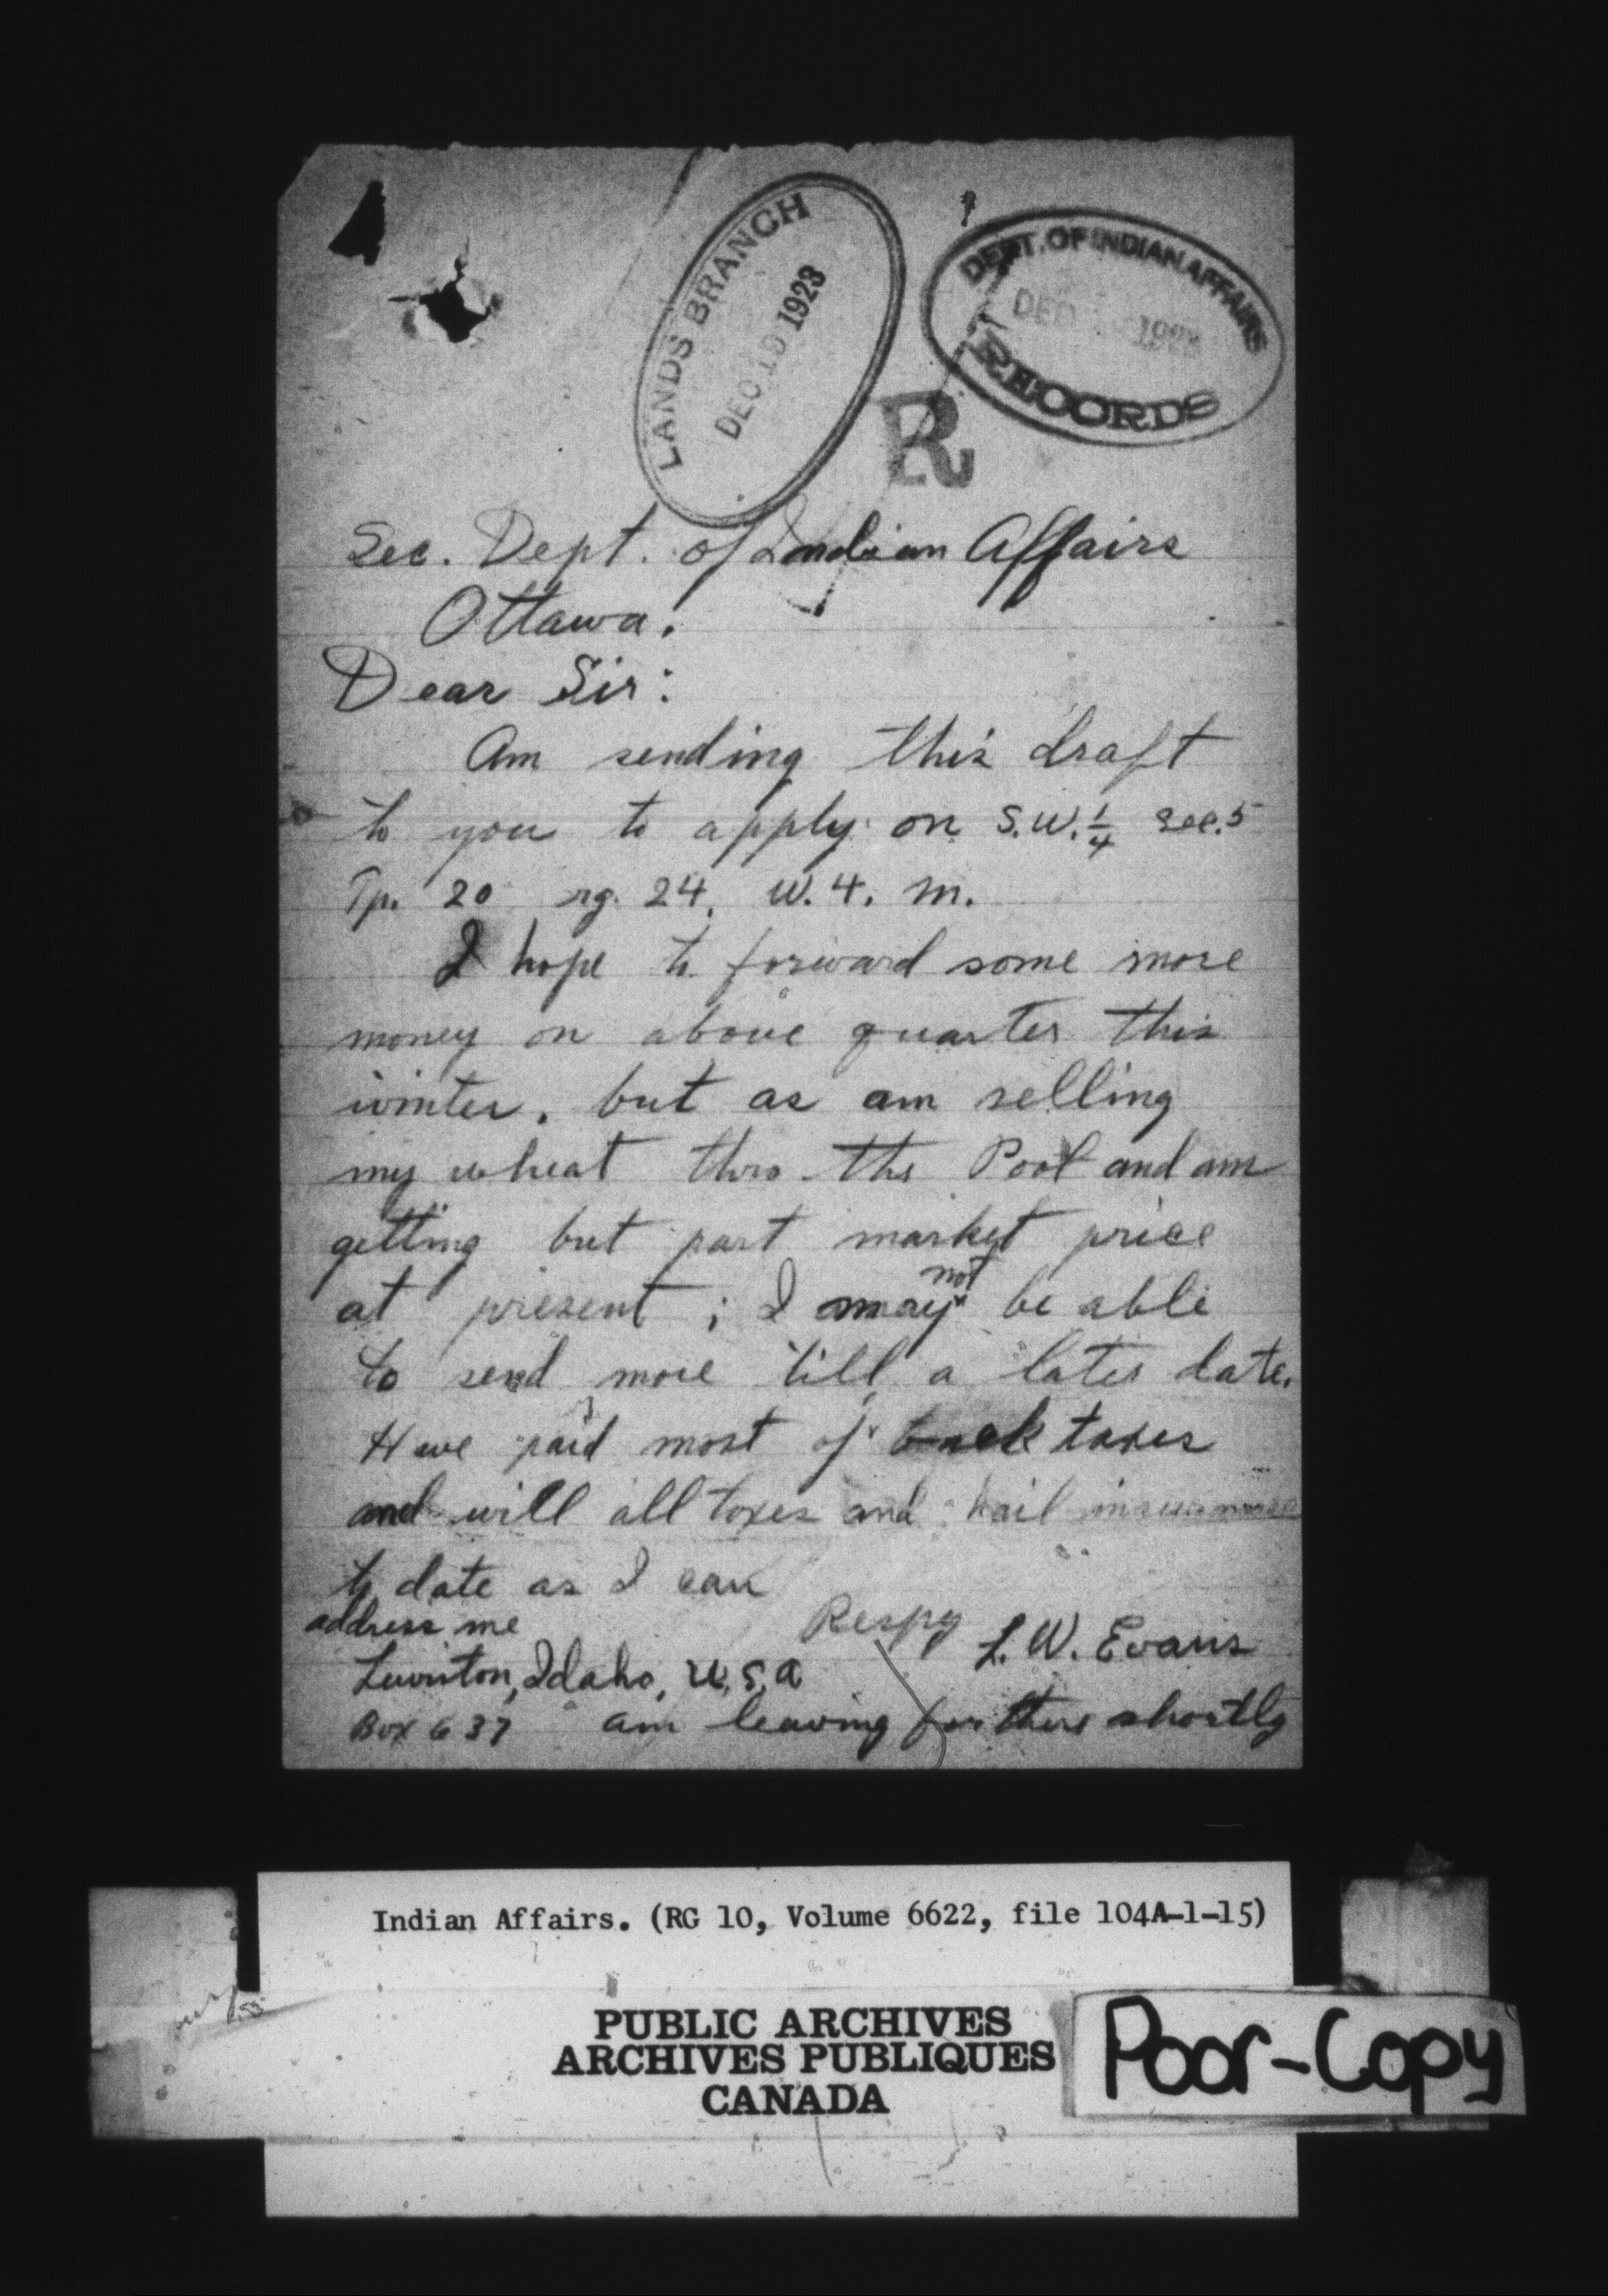 LANDS BRANCH
DEC 10 1923
DEPT. OF INDIAN AFFAIRS
DEC
RECORDS
R
Sec. Dept. of Indian Affairs
Ottawa.
Dear Sir:
Am sending this draft
to you to apply on S.W. 1/4 Sec. 5
Tp. 20 rg. 24. W. 4. M.
I hope to forward some more
money on above quarter this
winter. but as am selling
my wheat thro the Pool and am
getting but part market price
at present ; I may not be able
to send more till a later date.
Have paid most of back taxes
and will all taxes and hail insurance
to date as I can
address me
Respy L. W. Evans
Lewiston, Idaho, U.S.A
Box 637 am leaving for there shortly
Indian Affairs. (RG 10, Volume 6622, file 104A-1-15)
PUBLIC ARCHIVES
ARCHIVES PUBLIQUES
CANADA
Poor-Copy